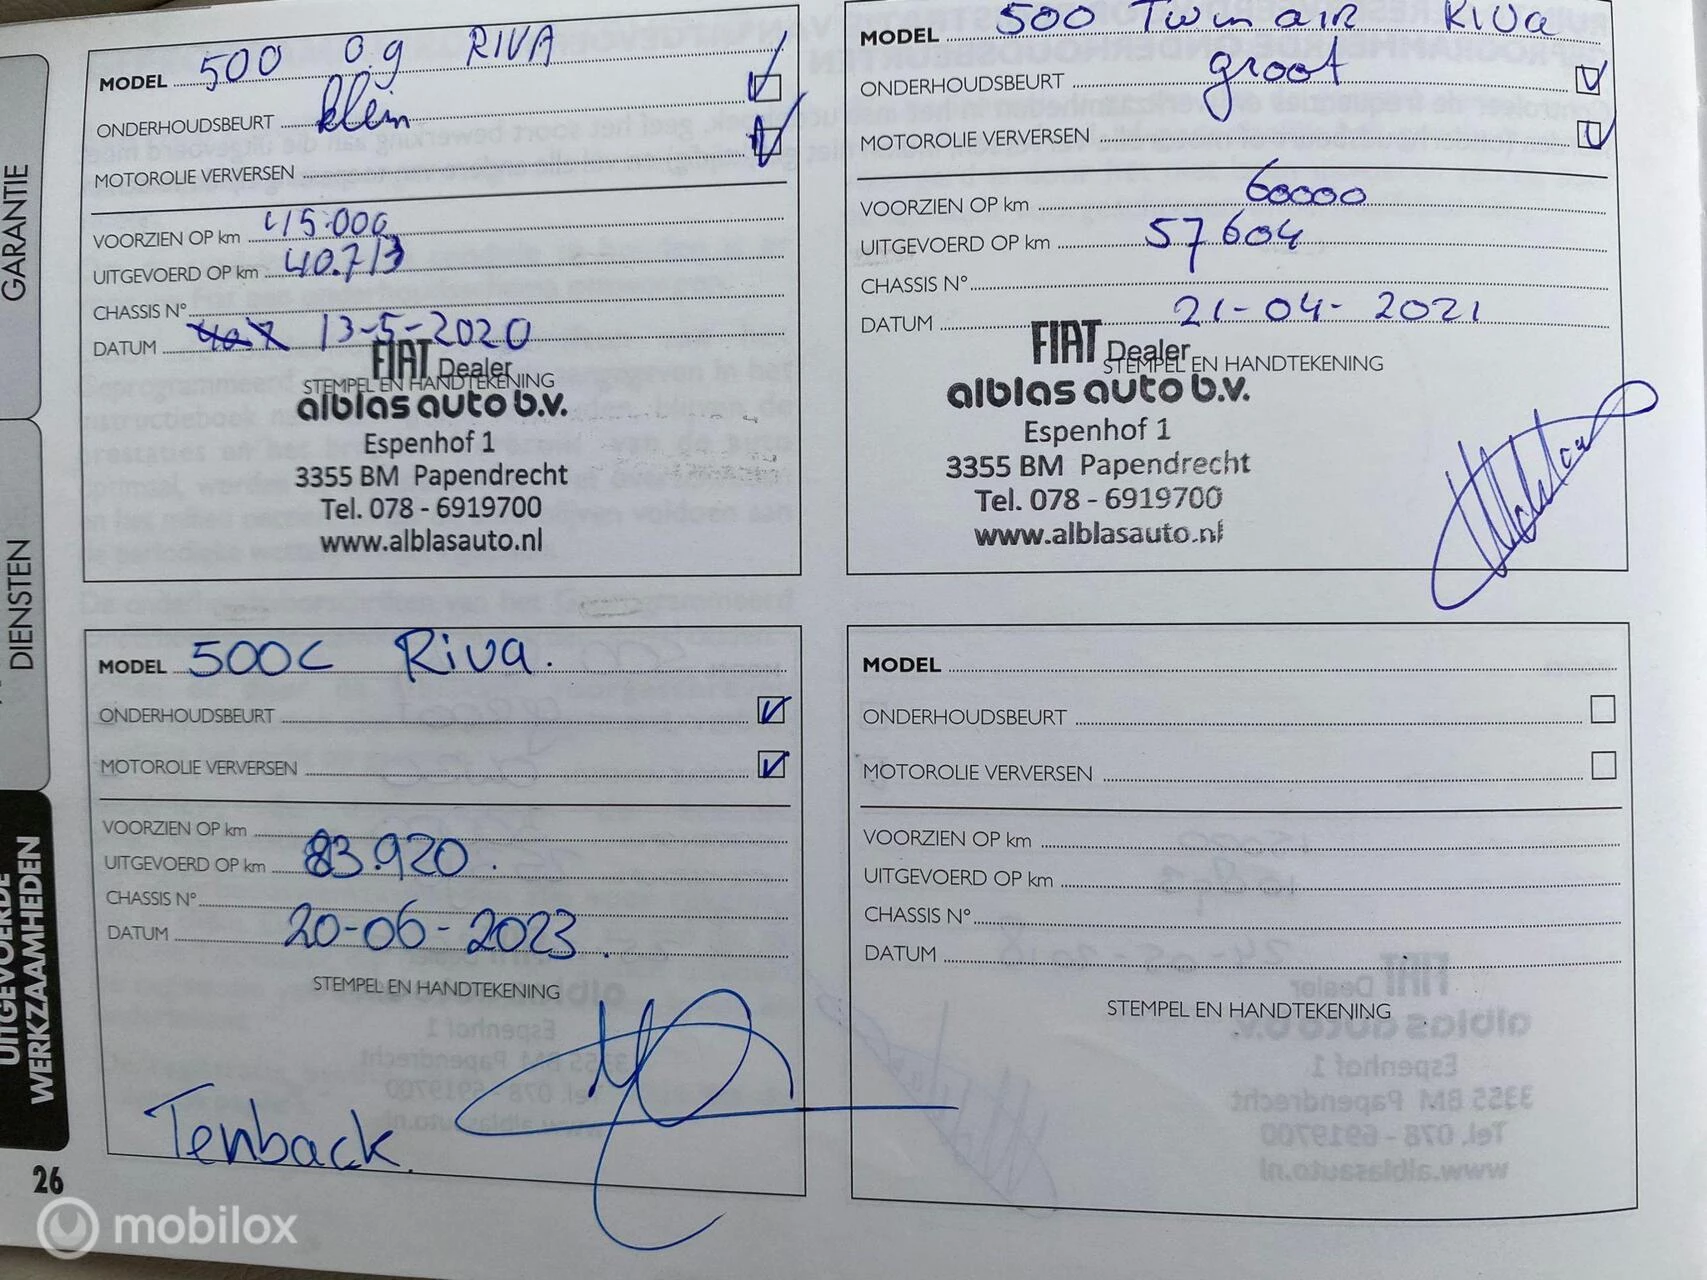 GARANTIE
DIENSTEN
UITGEVOERDE
WERKZAAMHEDEN
MODEL 500 0.9 RIVA
ONDERHOUDSBEURT klein
MOTOROLIE VERVERSEN
VOORZIEN OP km 45.000
UITGEVOERD OP km 40.713
CHASSIS N°
DATUM 13-5-2020
FIAT Dealer
STEMPEL EN HANDTEKENING
alblas auto b.v.
Espenhof 1
3355 BM Papendrecht
Tel. 078 - 6919700
www.alblasauto.nl
MODEL 500 Twin air RIVa
ONDERHOUDSBEURT groot
MOTOROLIE VERVERSEN
VOORZIEN OP km 60000
UITGEVOERD OP km 57604
CHASSIS N°
DATUM 21-04-2021
FIAT Dealer
STEMPEL EN HANDTEKENING
alblas auto b.v.
Espenhof 1
3355 BM Papendrecht
Tel. 078 - 6919700
www.alblasauto.nl
MODEL 500C Riva.
ONDERHOUDSBEURT
MOTOROLIE VERVERSEN
VOORZIEN OP km
UITGEVOERD OP km 83.920.
CHASSIS N°
DATUM 20-06-2023.
STEMPEL EN HANDTEKENING
Tenback.
MODEL
ONDERHOUDSBEURT
MOTOROLIE VERVERSEN
VOORZIEN OP km
UITGEVOERD OP km
CHASSIS N°
DATUM
STEMPEL EN HANDTEKENING
26
mobilox